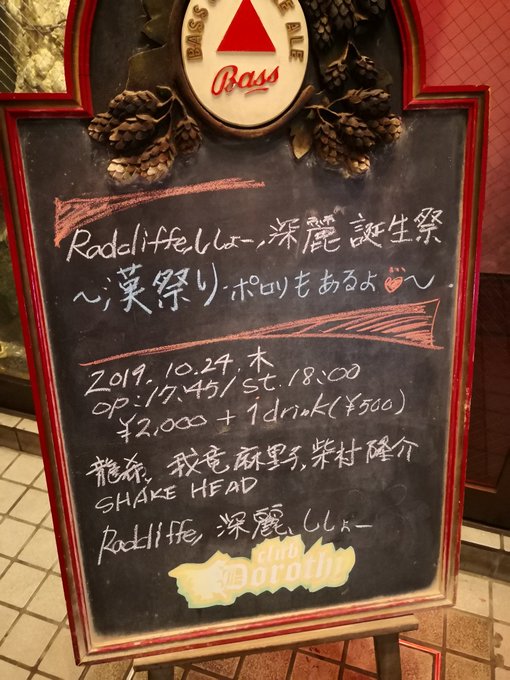 BASS ALE
Bass
Radcliffe,ししょー,深麗 誕生祭
～漢祭り・ポロリもあるよ～
2019. 10.24. 木
op:17:45/st.18:00
¥2,000 + 1drink(¥500)
龍希、我竜麻里子,柴村隆介
SHAKE HEAD
Radcliffe, 深麗、ししょー
club
Dorothy